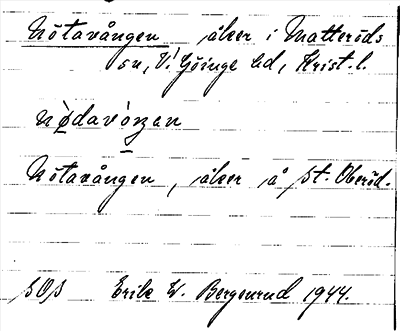 Nötavången åker i Matteröds
sn, V. Göinge hd, Krist. l.
nødavóngan
Nötavången, åker å St. Oberöd.
SOS Erik W. Bergenrud 1944.